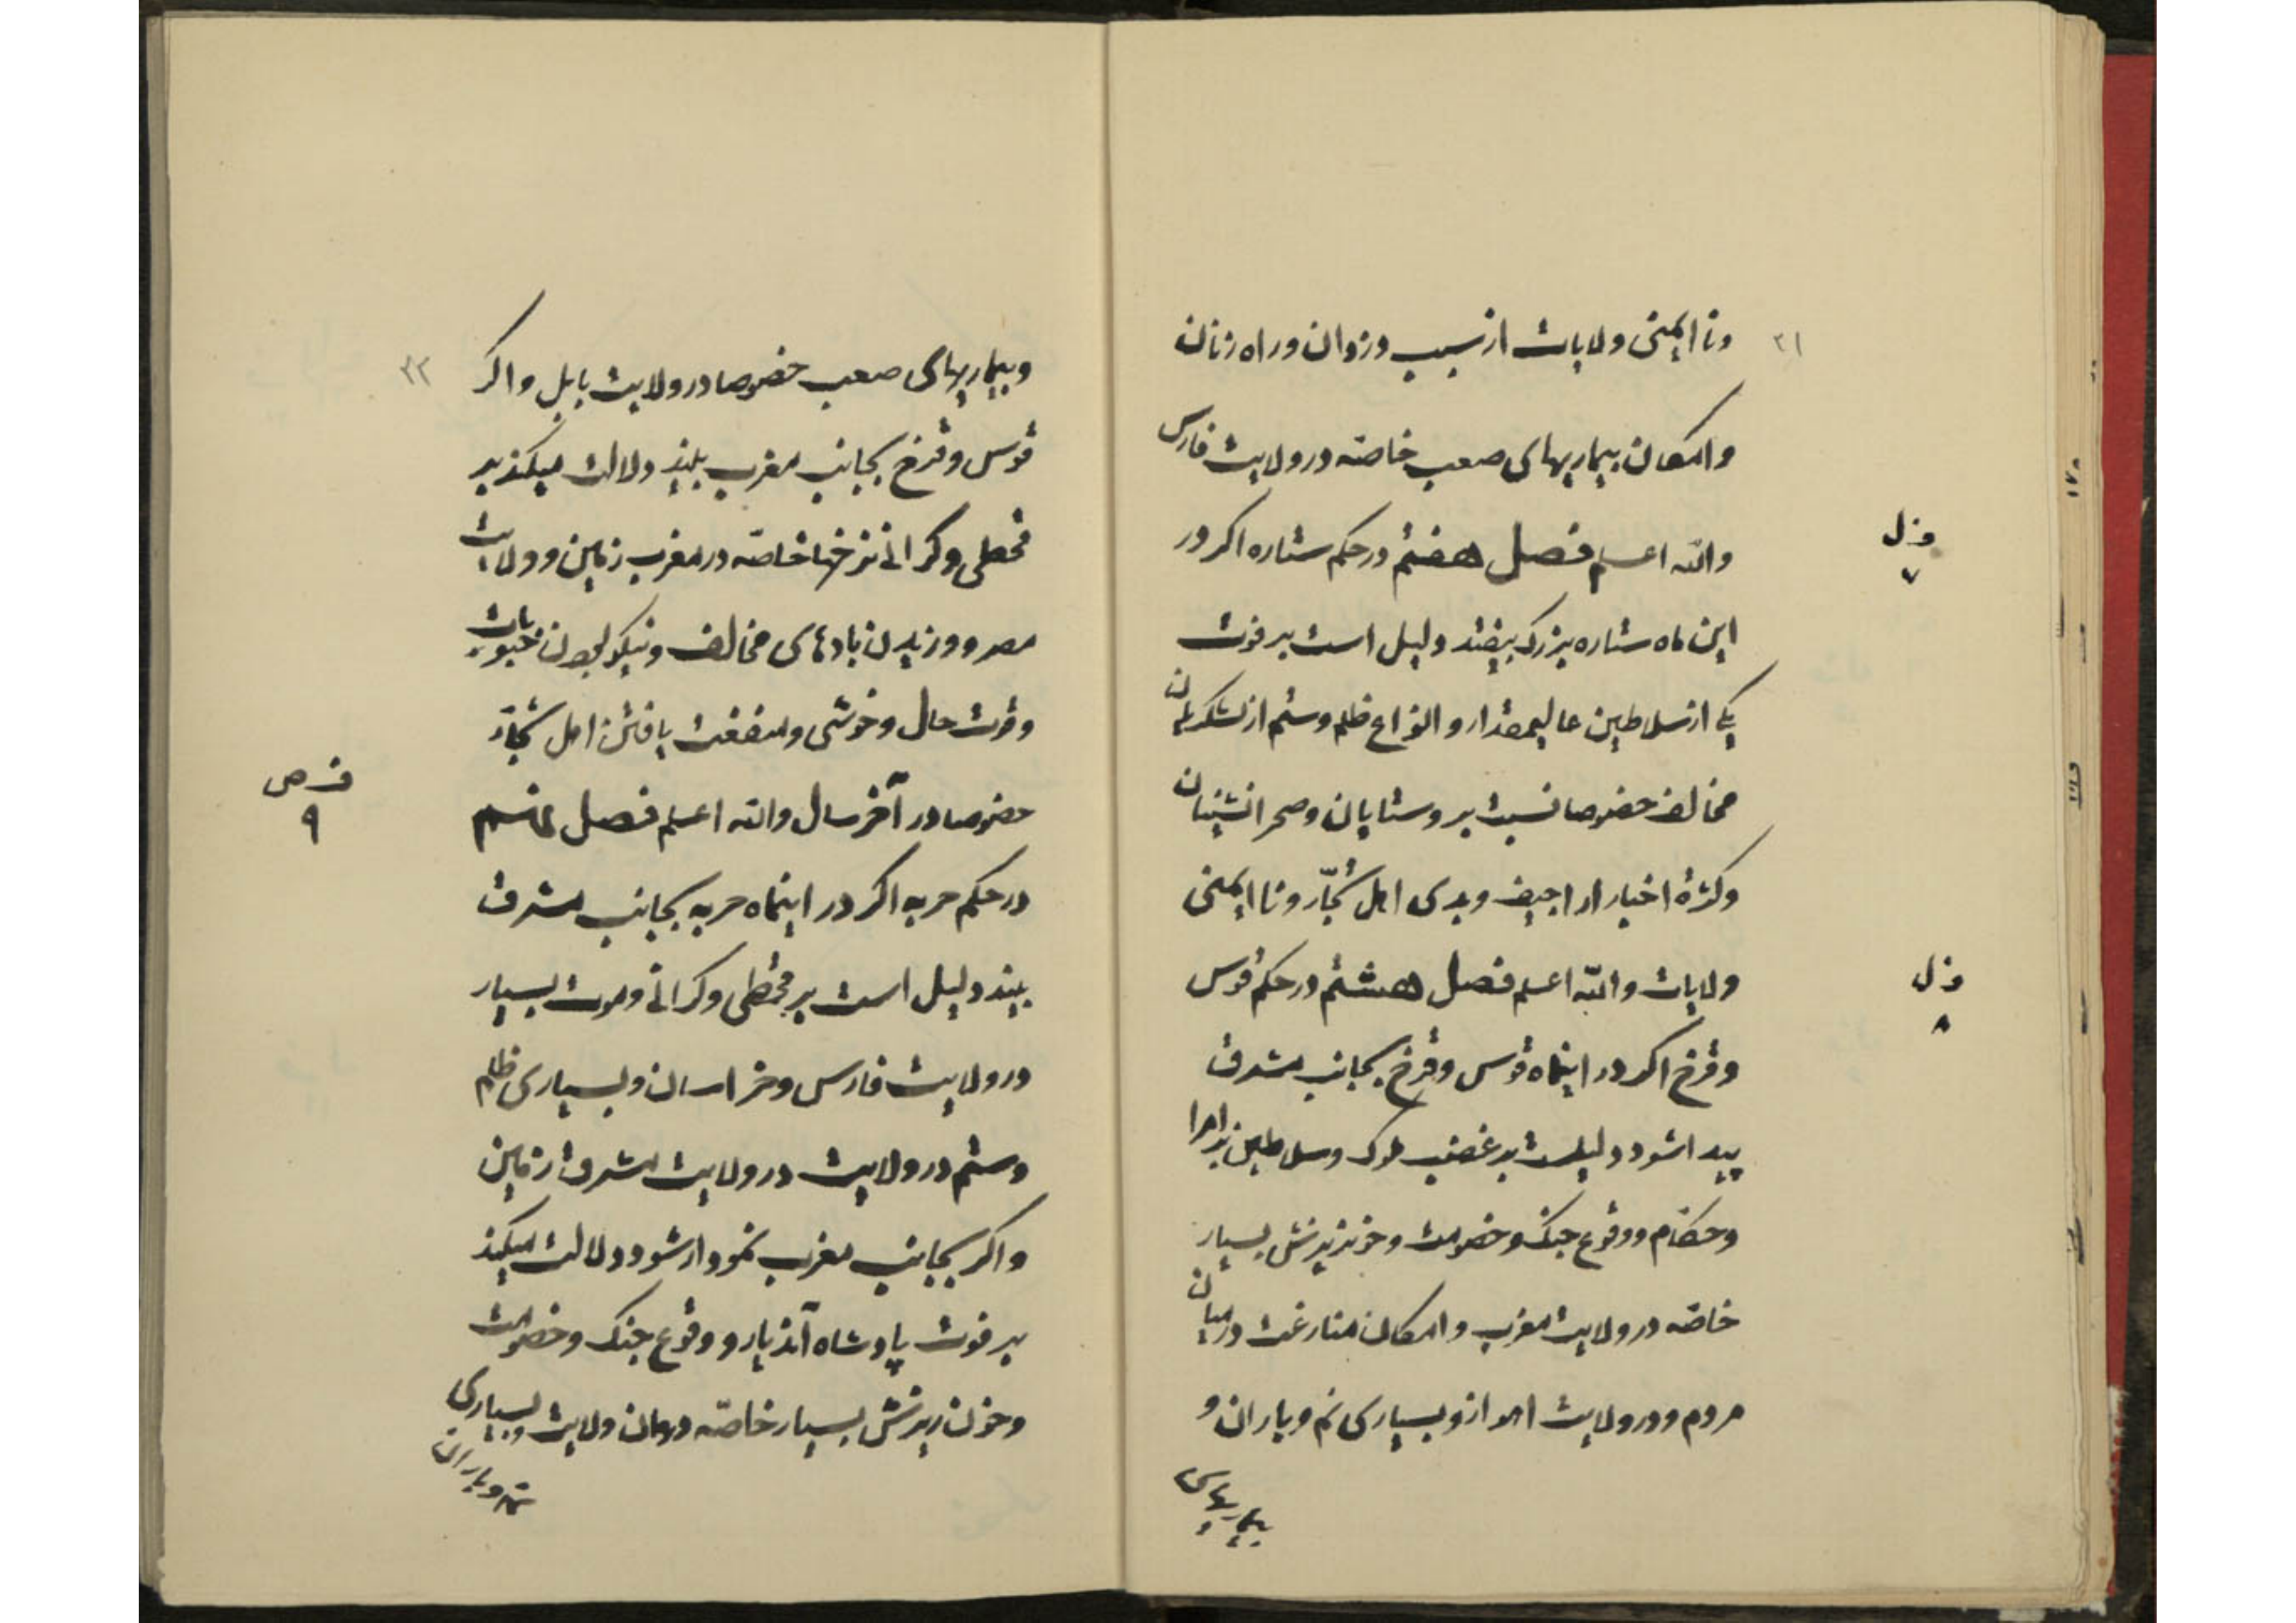 ۲۱
ونا ایمنی ولایات از سبب دزدان و راه زنان
و امکان بیماریهای صعب خاصه در ولایت فارس
والله اعلم فصل هفتم در حکم ستاره اکر در
این ماه ستاره بزرک بیفتد دلیل است بر فوت
یکی از سلاطین عالیمقدار و انواع ظلم و ستم از لشکریان
مخالف خصوصا نسبت بروستایان و صحرانشینان
و کثرة اخبار اراجیف و بدی اهل تجّار و نا ایمنی
ولایات والله اعلم فصل هشتم در حکم قوس
و قزخ اکر در اینماه قوس و قزخ بجانب مشرق
پیدا شود دلیلست بر غضب ملوک و سلاطین بر امرا
و حکام و وقوع جنک و خصومت و خونریزش بسیار
خاصه در ولایت مغرب و امکان منازعت در میان
مردم و در ولایت اهواز و بسیاری نم و باران و
بیماریهای
فصل
۷
فصل
۸
۲۲
و بیماریهای صعب خصوصا در ولایت بابل و اکر
قوس و قزخ بجانب مغرب بیند دلالت میکند بر
قحطی و کرانی نرخها خاصه در مغرب زمین و ولایت
مصر و وزیدن بادهای مخالف و نیکو بودن حبوبات
و قوت حال و خوشی و منفعت یافتن اهل تجّار
خصوصا در آخر سال والله اعلم فصل نهم
در حکم حربه اکر در اینماه حربه بجانب مشرق
بیند دلیل است بر قحطی و کرانی و موت بسیار
در ولایت فارس و خراسان و بسیاری ظلم
و ستم در ولایت در ولایت مشرق زمین
و اکر بجانب مغرب نمودار شود دلالت میکند
بر فوت پادشاه آندیار و وقوع جنک و خصومت
و خون ریزش بسیار خاصّه در همان ولایت و بسیاری
نم و باران
فصل
۹